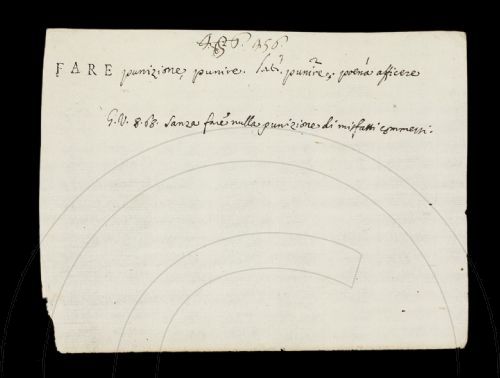 486. 456.
FARE punizione, punire. Lat. punire, poenâ afficere
G. V. 8. 68. Sanza fare nulla punizione di misfatti commessi.